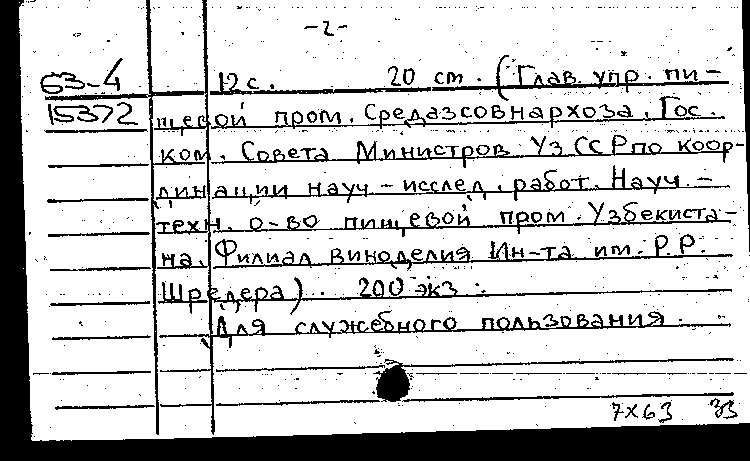 -2-
63-4 12 с. 20 cm. (Глав. упр. пи-
15372 щевой пром. Средазсовнархоза. Гос.
ком. Совета Министров УзССР по коор-
динации науч-исслед. работ. Науч.-
техн. о-во пищевой пром. Узбекиста-
на. Филиал виноделия Ин-та им. Р.Р.
Шредера). 200 экз.
Для служебного пользования.
7x63